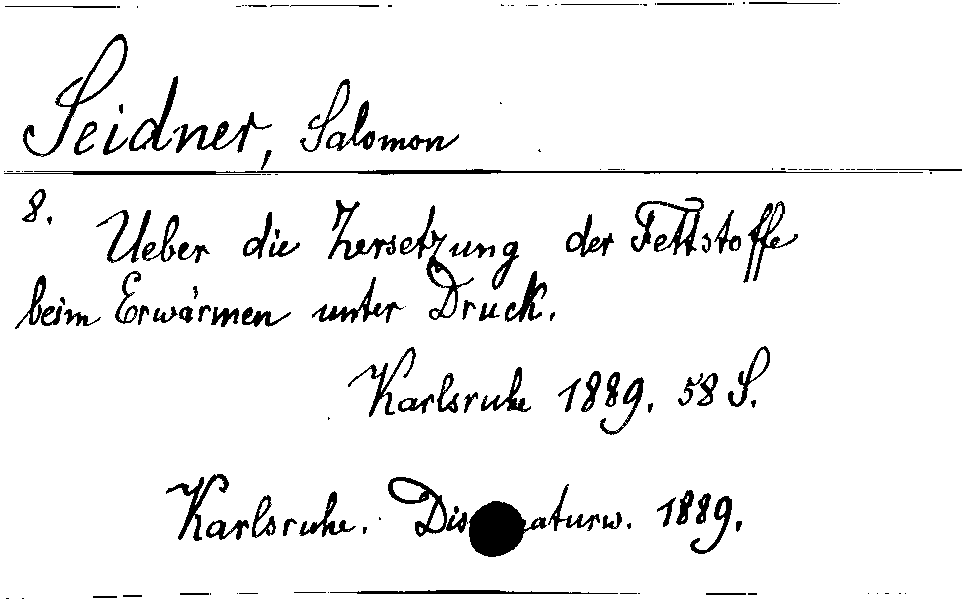 Seidner, Salomon
8. Ueber die Zersetzung der Fettstoffe
beim Erwärmen unter Druck.
Karlsruhe 1889. 58 S.
Karlsruhe. 1889.